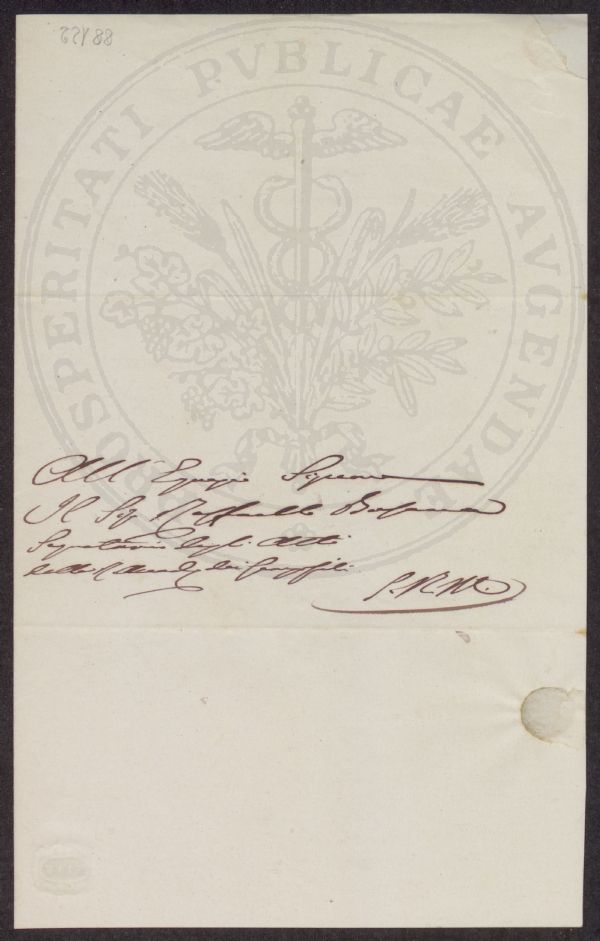 PROSPERITATI PVBLICAE AVGENDAE
All' Egregio Signore
Il Sig. Raffaello Busacca
Segretario degli Atti
della R. Accad. dei Georgofili